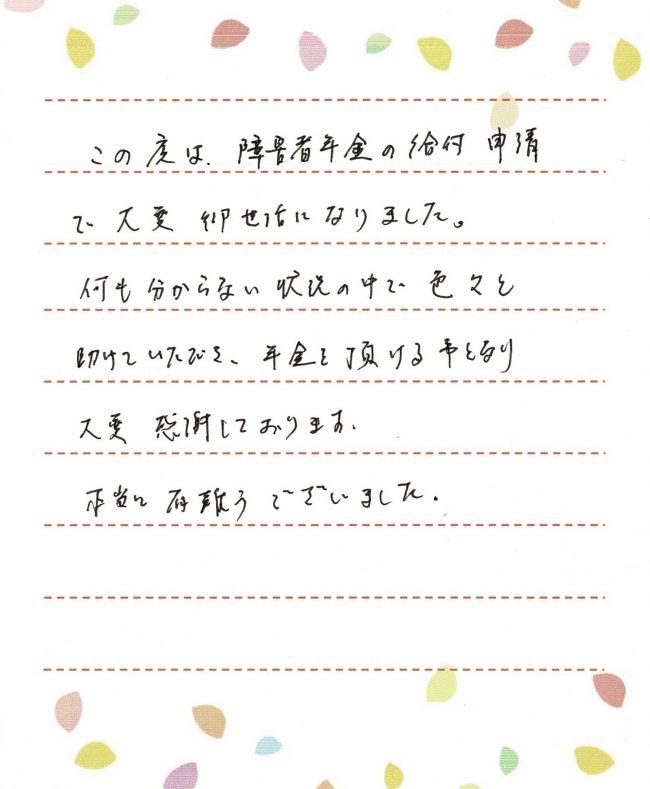 この度は、障害者年金の給付 申請
で 大変 御世話になりました。
何も分からない状況の中で 色々と
助けていただき、年金を頂ける事となり
大変 感謝しております。
本当に有難うございました。